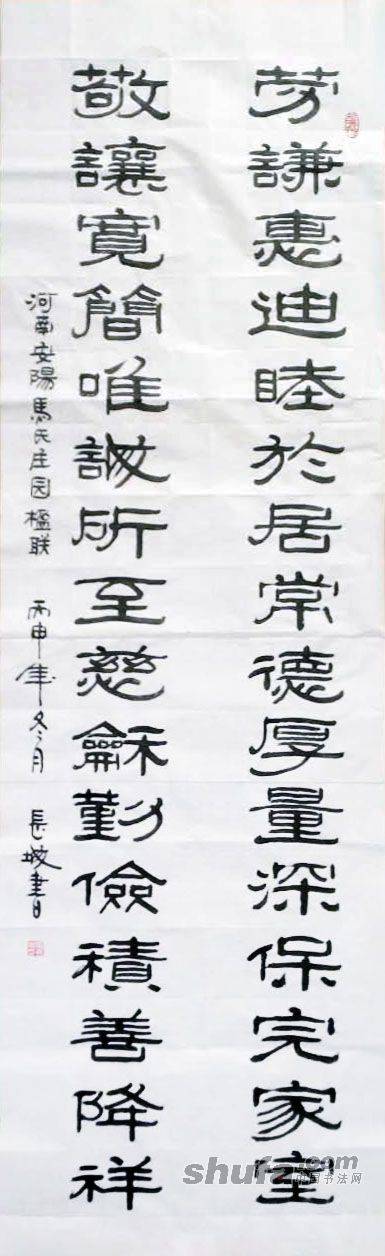 劳謙惠迪睦於居常德厚量深保完家室
敬讓寬簡唯誠所至慈龢勤儉積善降祥
河南安陽馬氏庄园楹联 丙申年冬月 長坡書
shufa.com
中国书法网